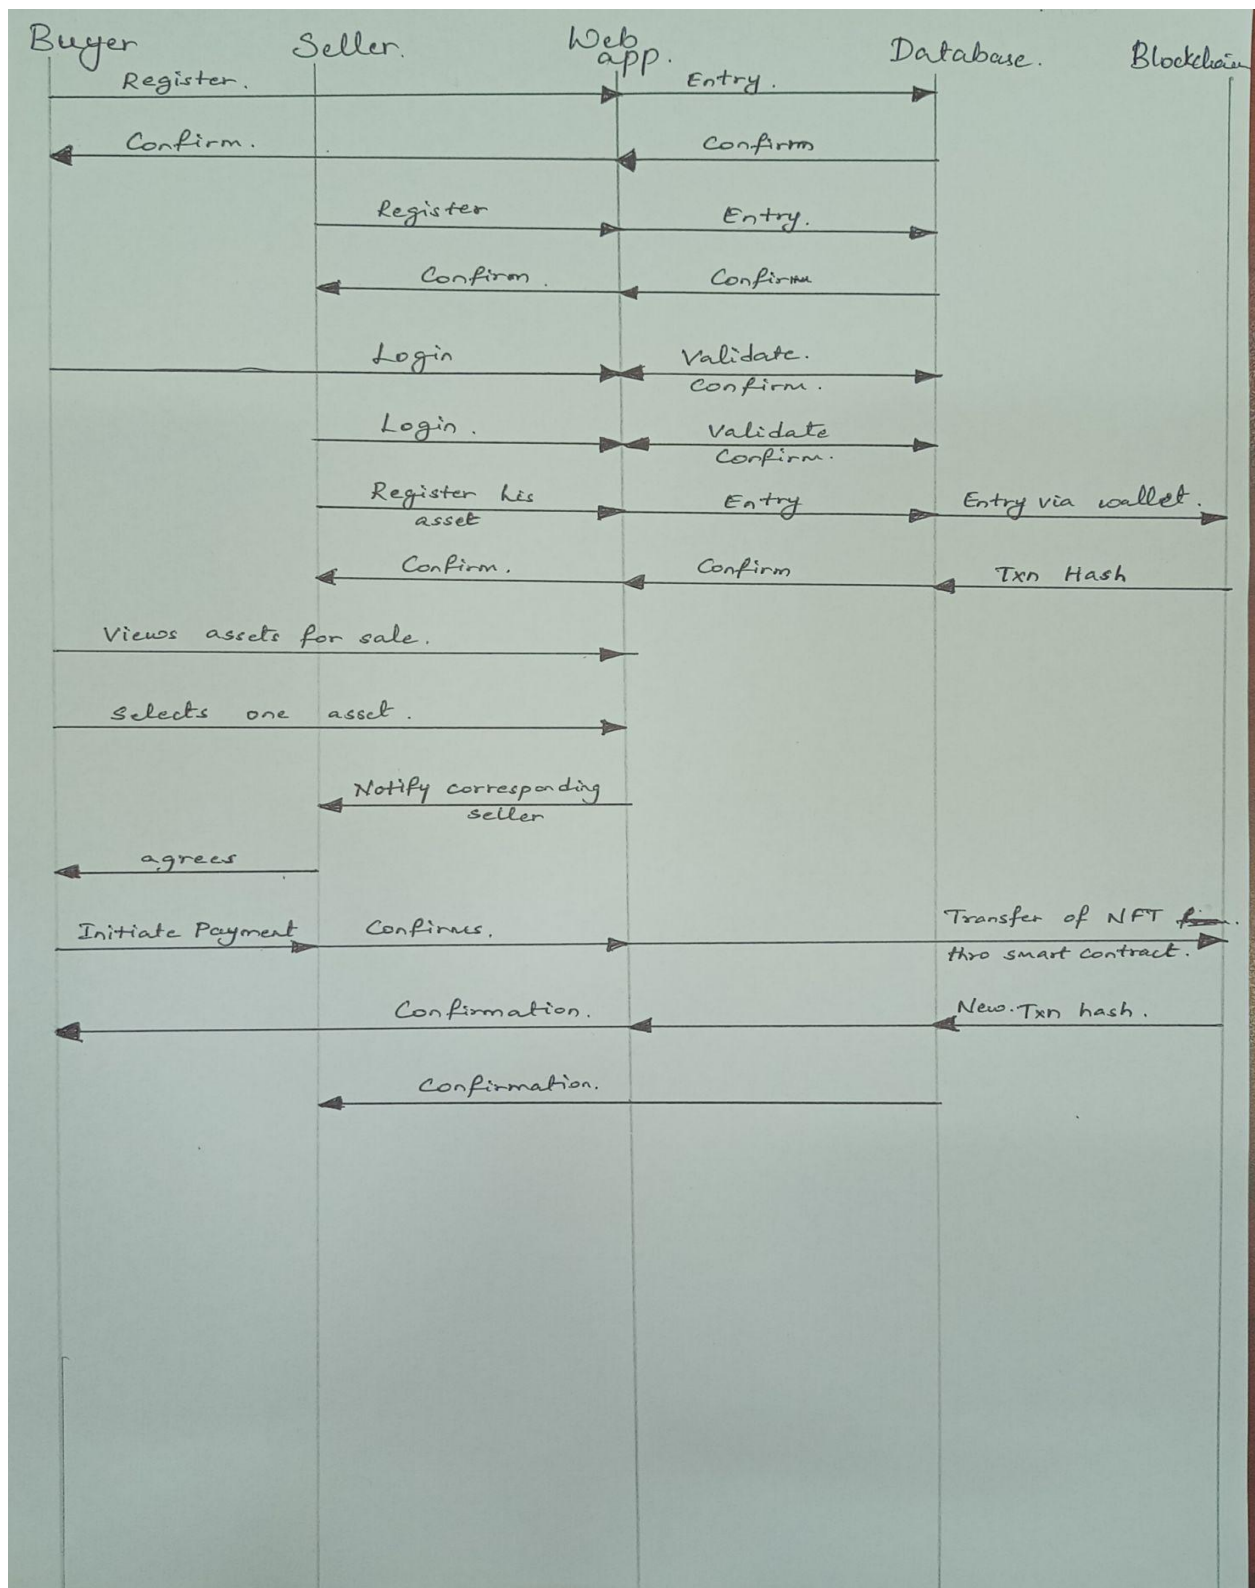 Buyer Seller. Web app. Database. Blockchain
Register. Entry.
Confirm. Confirm
Register Entry.
Confirm. Confirm
Login Validate.
Confirm.
Login. Validate
Confirm.
Register his asset Entry Entry via wallet.
Confirm. Confirm Txn Hash
Views assets for sale.
Selects one asset.
Notify corresponding
seller
agrees
Initiate Payment Confirms. Transfer of NFT
thro smart contract.
Confirmation. New. Txn hash.
Confirmation.